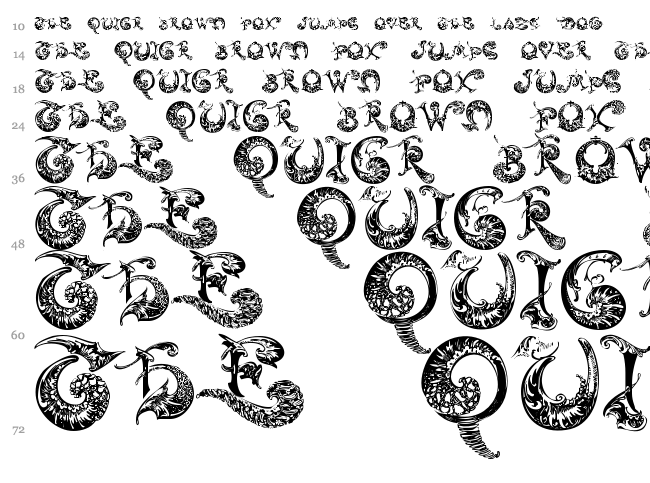 10 THE QUICK BROWN FOX JUMPS OVER THE LAZY DOG
14 THE QUICK BROWN FOX JUMPS OVER THE
18 THE QUICK BROWN FOX JUMPS
24 THE QUICK BROWN FOX
36 THE QUICK BROW
48 THE QUICK
60 THE QUIC
72 THE QUI